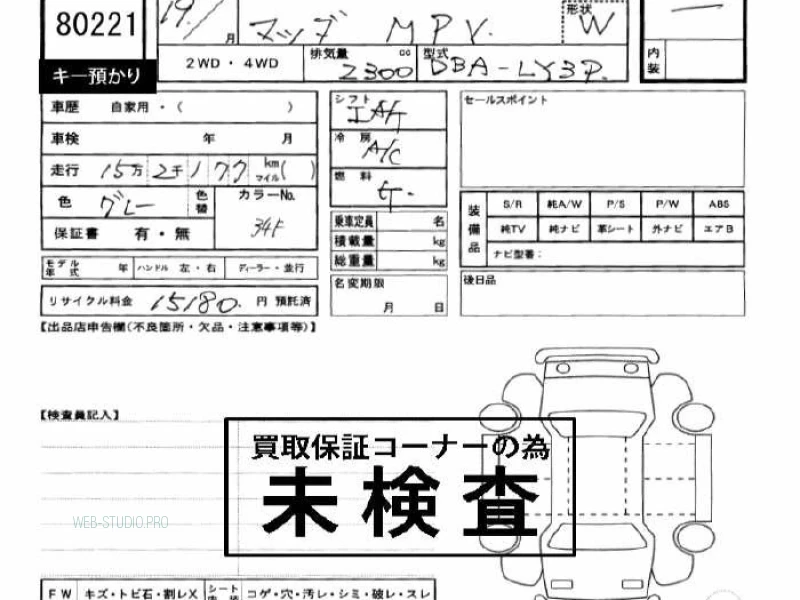 80221
19/
月
マツダ MPV
形状 W
キー預かり
2WD・4WD
排気量 cc 2300
型式 DBA-LY3P
内装
車歴 自家用・( )
シフト
セールスポイント
車検 年 月
冷房 A/C
走行 15万2千177 km マイル( )
燃料
色 グレー 色替
カラーNo. 34F
装備品 S/R 純A/W P/S P/W ABS
純TV 純ナビ 革シート 外ナビ エアB
ナビ型番:
保証書 有・無
乗車定員 名
積載量 kg
総重量 kg
モデル年式 年 ハンドル 左・右 ディーラー・並行
名変期限 月 日
後日品
リサイクル料金 15180 円 預託済
【出品店申告欄(不良箇所・欠品・注意事項等)】
【検査員記入】
買取保証コーナーの為
未検査
WEB-STUDIO.PRO
FW キズ・トビ石・割レX シート コゲ・穴・汚レ・シミ・破レ・スレ